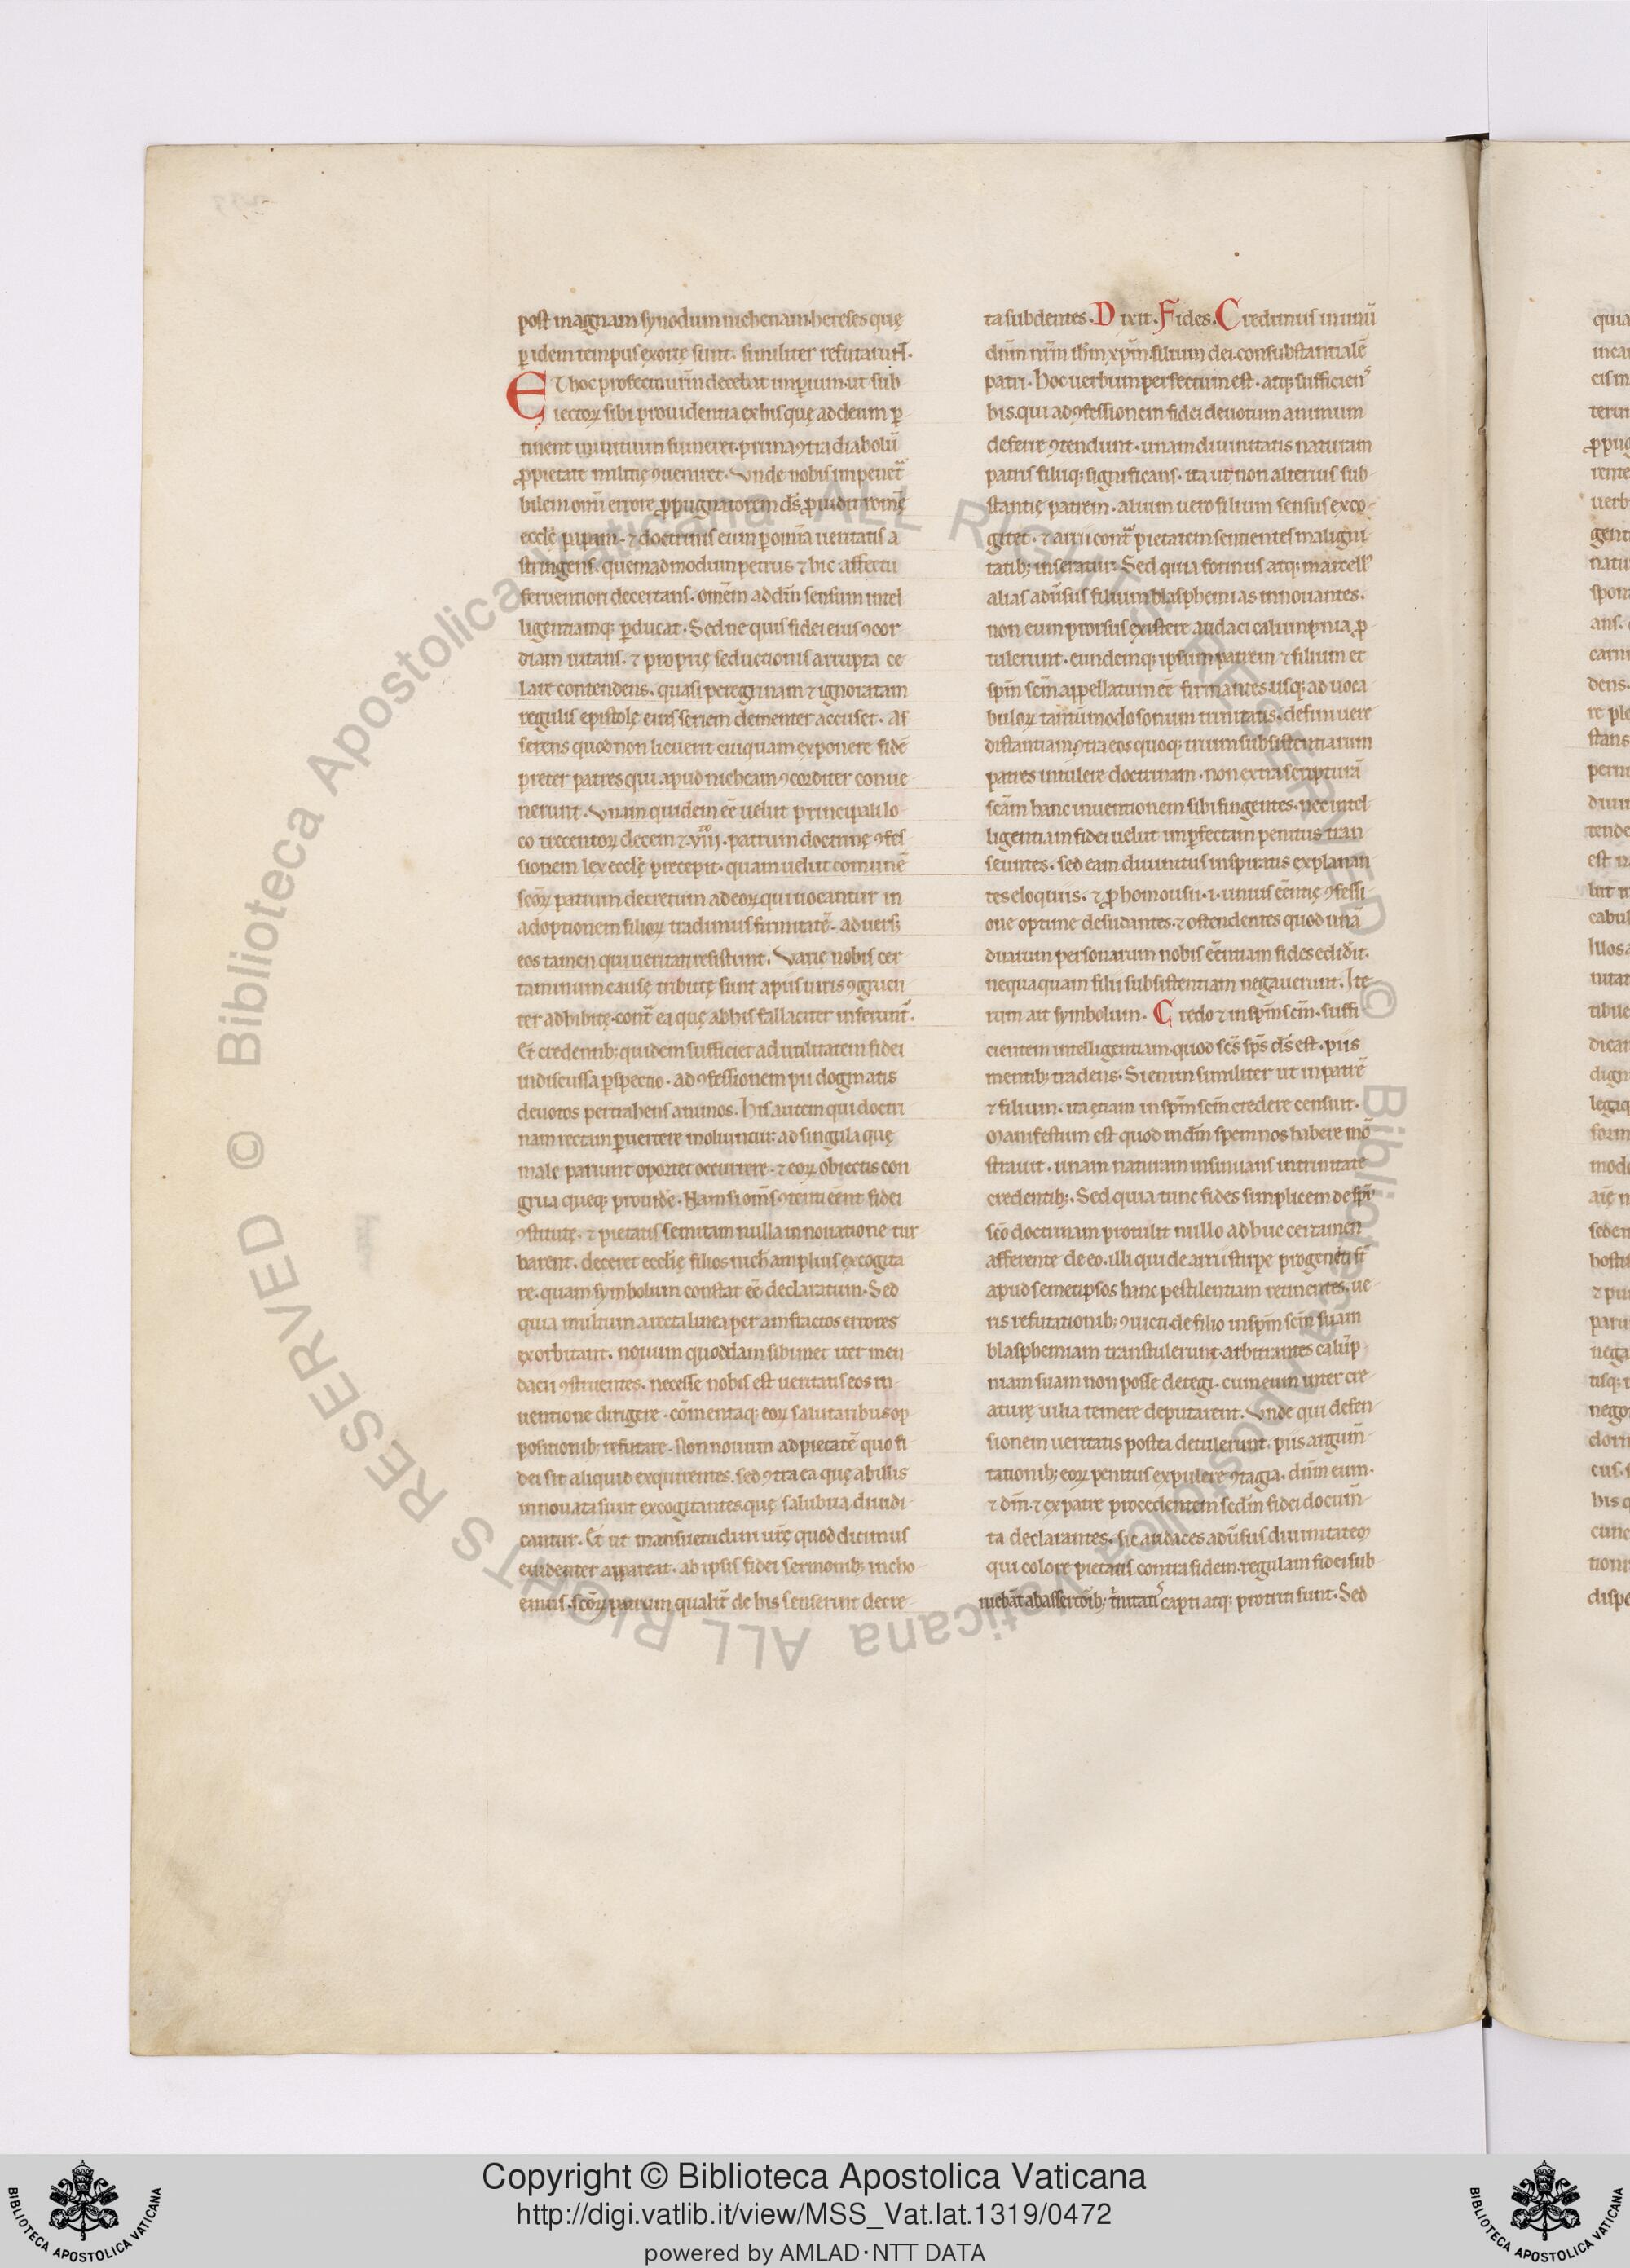 post magnam synodum nichenam. hereses quę
p̱ idem tempus exortę sunt. similiter refutarunt.
Et hoc profecto urm̄ decebat imp̱ium. ut sub
iectoꝝ sibi prouidentia ex his quę ad deum p̱
tinent initium sumeret. prima ꝯtra diabolū
ꝓpietate militię ꝯueniret. Unde nobis impenet̄
bilem omi errore ꝓpugnatorem ds̄ ꝓuidit romę
eccłę papam. ⁊ doctrinis eum p̱ omīa ueritatis a
stringens. quemadmodum petrus ⁊ hic affectu
feruentiori decertans. omēm ad dm̄ sensum intel
ligentiamq; p̱ducat. Sed ne quis fidei eius ꝯcor
diam uitans. ⁊ proprię seductionis arrupta ce
lare contendens. quasi peregrinam ⁊ ignoratam
regulis epistolę eius seriem dementer accuset. As
serens quod non licuerit cuiquam exponere fidē
preter patres qui apud nicheam ꝯcorditer conue-
nerunt. Unam quidem eē uelut principali lo
co trecentoꝝ decem ⁊ .viii. patrum doctrinę ꝯfes
sionem lex eccłę precepit. quam uelut comunē
scōꝝ patrum decretum ad eoꝝ qui uocantur in
adoptionem filioꝝ tradimus firmitatē. aduersꝰ
eos tamen qui ueritati resistunt. Varię nobis cer
taminum causę tributę sunt a piis uiris ꝯgruen
ter adhibitę. cont̄ ea quę ab his fallaciter inferunt̄.
Et credentib; quidem sufficiet ad utilitatem fidei
indiscussa p̱spectio. ad ꝯfessionem pii dogmatis
deuotos pertrahens animos. His autem qui doctri
nam rectam p̱uertere moliuntur. ad singula quę
male pariunt oportet occurrere. ⁊ eoꝝ obiectis con
grua queq; prouidē. Nam si oms̄ ꝯtenti eēnt fidei
ꝯstitutę. ⁊ pietatis semitam nulla innouatione tur
barent. deceret eccłię filios nich̄ amplius excogita
re. quam symbolum constat eē declaratum. Sed
quia multum a recta linea per amfractos errores
exorbitant. nouum quoddam sibimet iter men
dacii ꝯstruentes. necesse nobis est ueritatis eos in-
uentione dirigere. cōmentaq; eoꝝ salutaribus op
positionib; refutare. Non nouum ad pietatē quo fi
dei sit aliquid exquirentes. sed ꝯtra ea quę ab illis
innouata sunt excogitantes. quę salubria diiudi-
cantur. Et ut mansuetudini urę quod dicimus
euidenter appareat. ab ipsis fidei sermonib; incho-
emus. scōꝝ patrum qualit̄ de his senserunt decre-
ta subdentes. Dixit. Fides. Credimus in unū
dnm̄ nrm̄ ihm̄ xpm̄ filium dei consubstantialē
patri. Hoc uerbum perfectum est. atq; sufficiens
his. qui ad ꝯfessionem fidei deuotum animum
deferre ꝯtendunt. unam diuinitatis naturam
patris filiiq; significans. ita ut non alterius sub-
stantię patrem. alium uero filium sensus exco-
gitet. ⁊ arrii cont̄ pietatem sentientes maligni-
tatib; inseratur. Sed quia fotinus atq; marcellꝰ
alias adūsus filium blasphemias innouantes.
non eum prorsus existere audaci calumpnia ꝓ
tulerunt. eundemq; ipsum patrem ⁊ filium et
spm̄ scm̄ appellatum eē firmantes. usq; ad uoca
buloꝝ tantūmodo sonum trinitatis. definiuere
distantiam. ꝯtra eos quoq; trium subsistentiarum
patres intulere doctrinam. non extra scripturā
scām hanc inuentionem sibi fingentes. nec intel-
ligentiam fidei uelut imp̱fectam penitus tran
seuntes. sed eam diuinitus inspiratis explanan
tes eloquiis. ⁊ ꝓ homousii .i. unius eēntię ꝯfessi-
one optime desudantes. ⁊ ostendentes quod unā
duarum personarum nobis eēntiam fides edidit.
nequaquam filii subsistentiam negauerunt. Ite-
rum ait symbolum. Credo ⁊ in spm̄ scm̄. suffi
cientem intelligentiam. quod scs̄ sps̄ ds̄ est. piis
mentib; tradens. Si enim similiter ut in patrē
⁊ filium. ita etiam in spm̄ scm̄ credere censuit.
Manifestum est quod in dm̄ spem nos habere mō
strauit. unam naturam insinuans in trinitate
credentib;. Sed quia tunc fides simplicem de spū
scō doctrinam protulit nullo adhuc certamen
afferente de eo. illi qui de arrii stirpe progeniti st̄
apud semetipsos hanc pestilentiam retinentes. ue-
ris refutationib; ꝯuicti. de filio in spm̄ scm̄ suam
blasphemiam transtulerunt. arbitrantes calūp
niam suam non posse detegi. cum eum inter cre-
aturę uilia temere deputarent. Unde qui defen-
sionem ueritatis postea detulerunt. piis argum̄-
tationib; eoꝝ penitus expulere ꝯtagia. dnm̄ eum.
⁊ dm̄. ⁊ ex patre procedentem scdm̄ fidei docum̄-
ta declarantes. sic audaces adūsus diuinitatem
qui colore pietatis contra fidem. regulam fidei sub-
niebāt ab assertōib; t̄nitatis capti atq; protriti sunt. Sed
Copyright © Biblioteca Apostolica Vaticana
http://digi.vatlib.it/view/MSS_Vat.lat.1319/0472
powered by AMLAD·NTT DATA